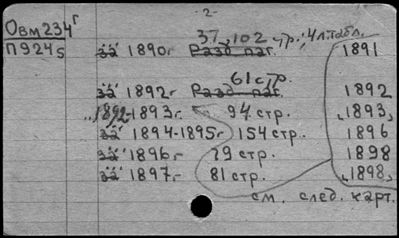 - 2 -
Овм 234г
П924s
37, 102 стр., 4 л. табл.
за 1890г. Разд. паг. 1891
61 стр.
за 1892г. Разд. паг. 1892
"1892-1893г. 94 стр. "1893"
за 1894-1895г. 154 стр. 1896
за 1896г. 79 стр. 1898
за 1897г. 81 стр. "1898"
см. след. карт.